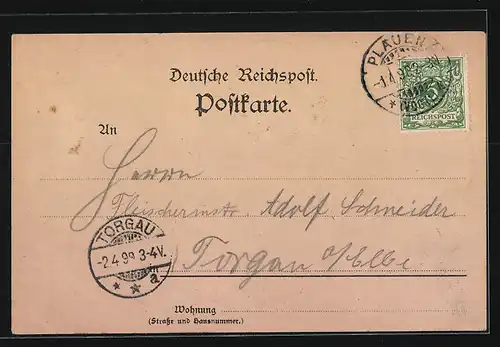 Deutsche Reichspost.
Postkarte.
PLAUEN
-1.4.99.
5
REICHSPOST
An
Herrn
Fleischermstr. Adolf Schneider
Torgau a/Elbe
TORGAU
-2.4.99 3-4V.
* * a
Wohnung
(Straße und Hausnummer.)